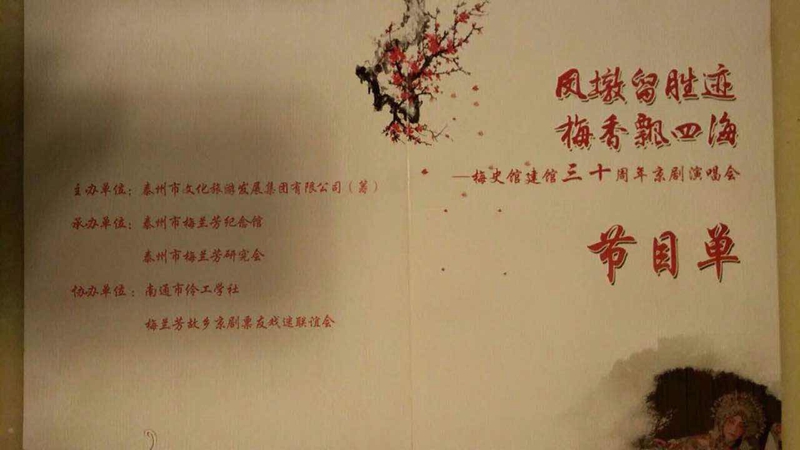 凤墩留胜迹
梅香飘四海
—梅史馆建馆三十周年京剧演唱会
节目单
主办单位：泰州市文化旅游发展集团有限公司（筹）
承办单位：泰州市梅兰芳纪念馆
泰州市梅兰芳研究会
协办单位：南通市伶工学社
梅兰芳故乡京剧票友戏迷联谊会